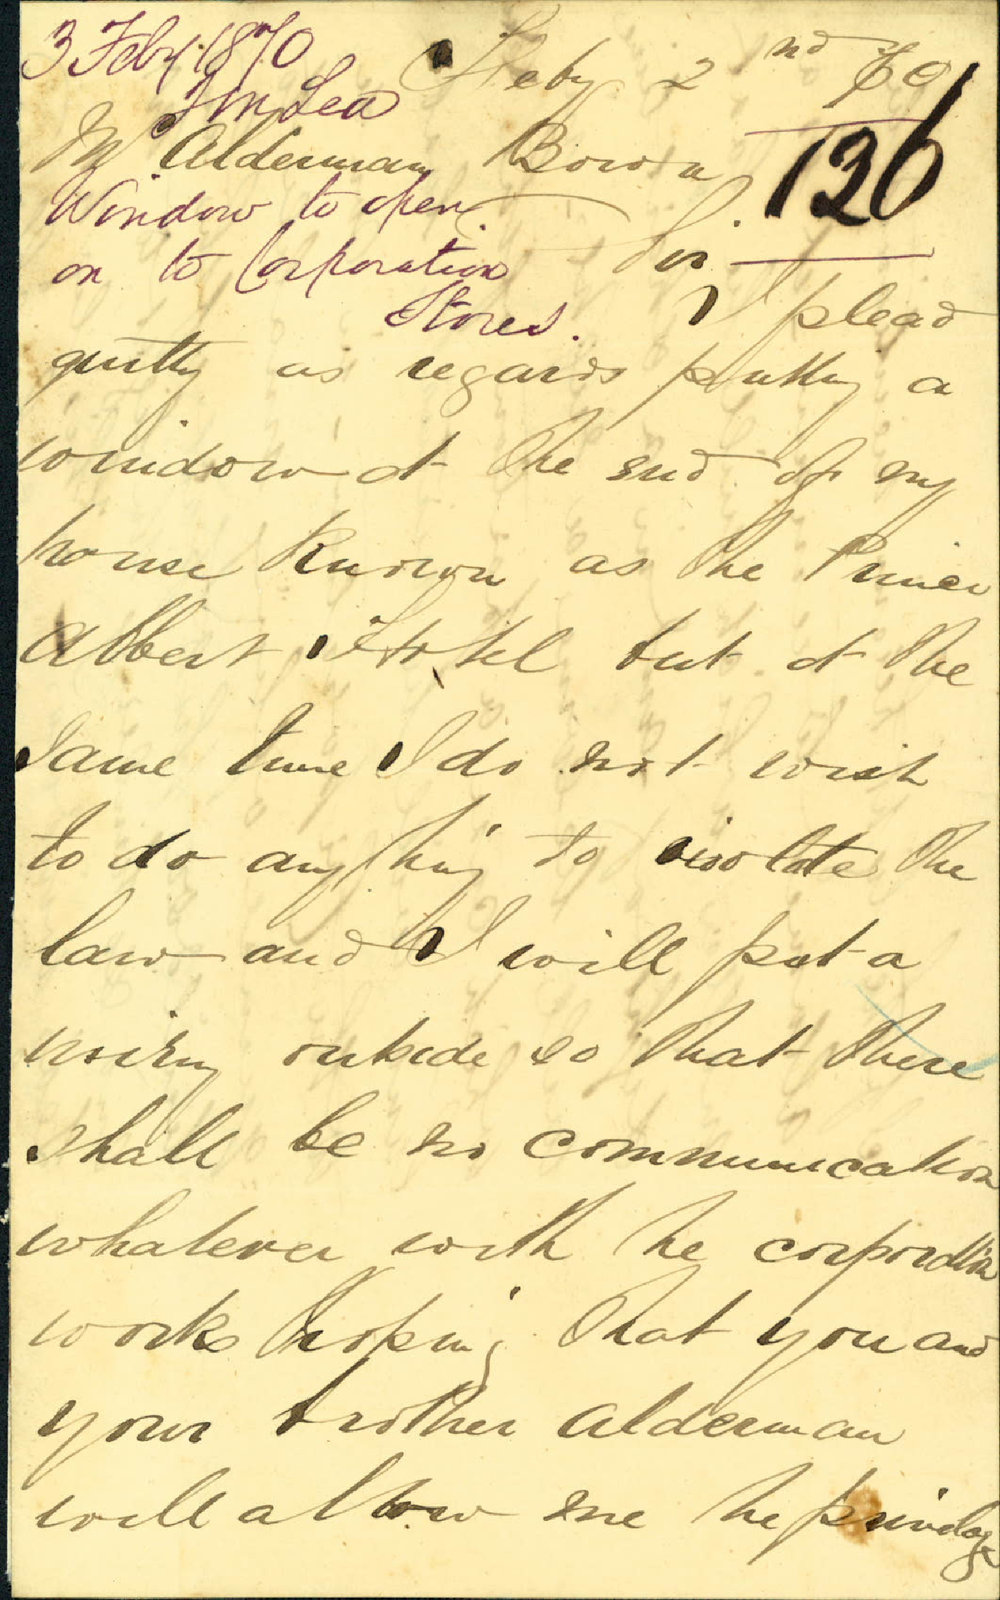 3 Feby. 1870
Feby 2nd 70
Jm Lea
126
Mr Alderman Bown
Window to open
on to Corporation
Stores.
Sir
I plead
guilty as regards putting a
window at the end of my
house known as the Prince
Albert Hotel but at the
same time I do not wish
to do anything to violate the
law and I will put a
wiring outside so that there
shall be no communication
whatever with the corporation
works hoping that you and
your brother alderman
will allow me the privilage